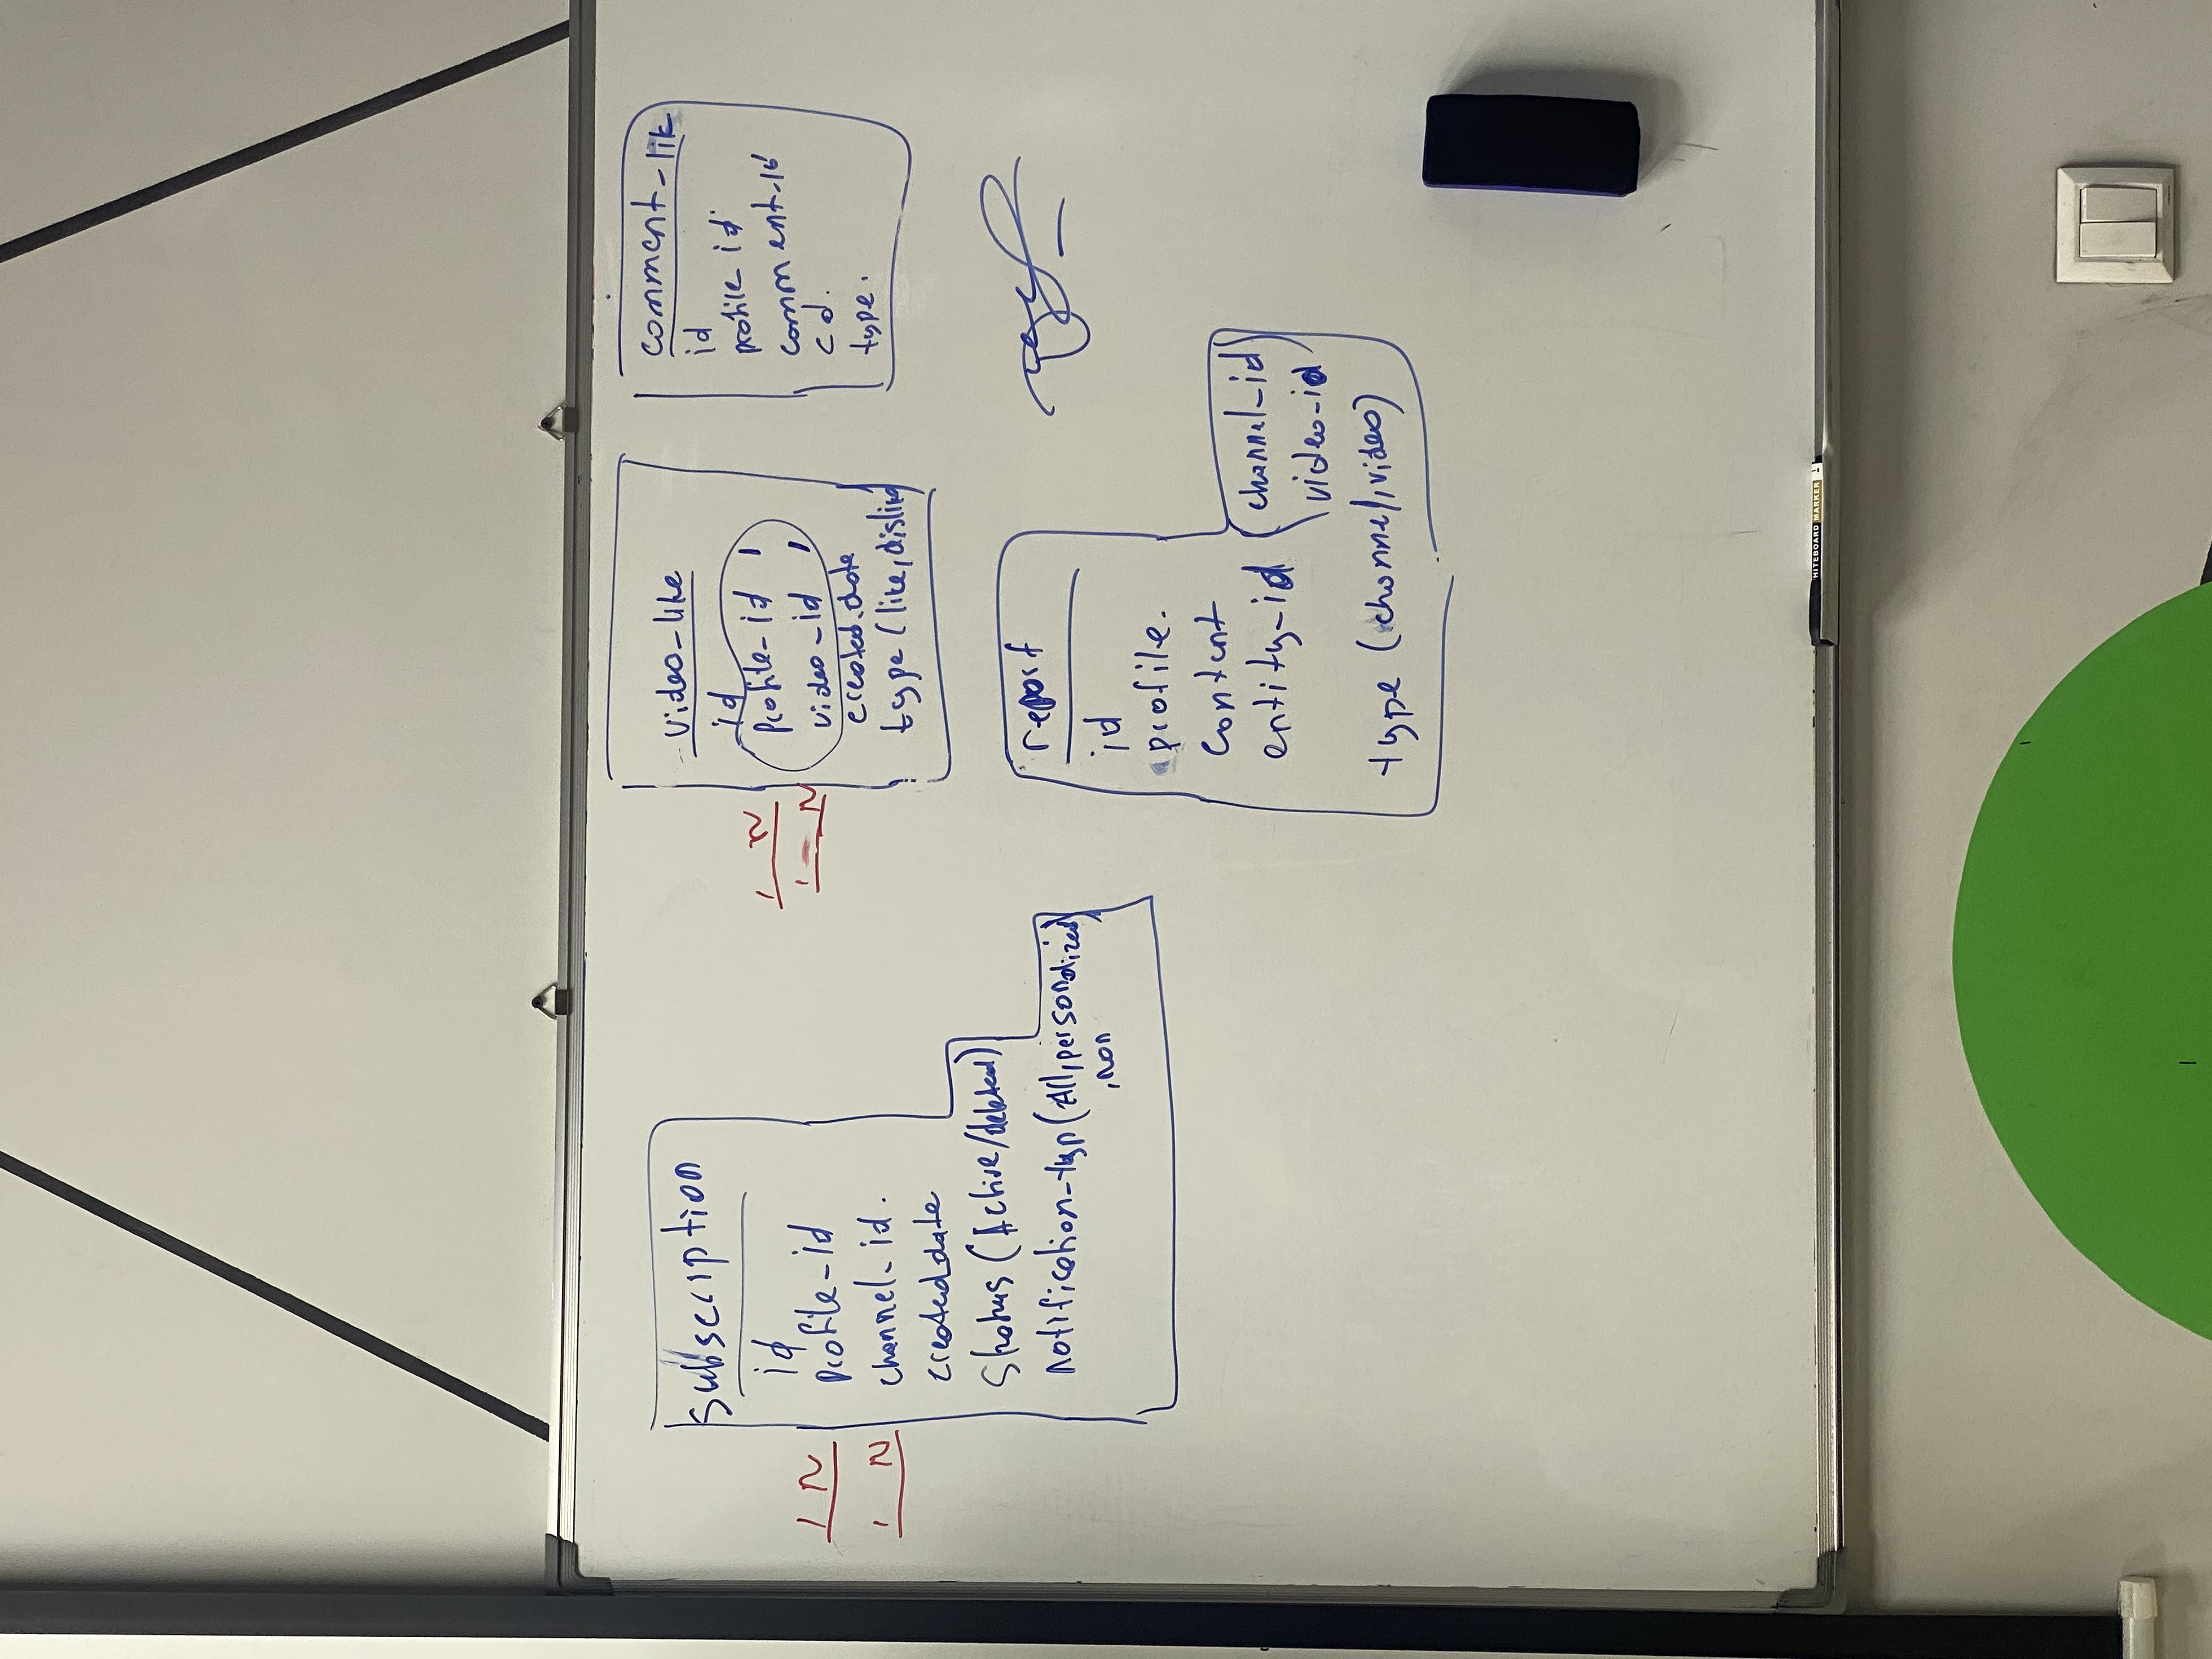 Subscription
id
profile_id
channel_id.
created_date
Status (Active/deleted)
notification_typ (All, personalized)
, non
1 N
1 N
video_like
id
profile_id
video_id
created_date
type (like, dislike)
1 N
1 N
comment_lik
id
profile id
comment_id
cd.
type.
report
id
profile.
content
entity_id (channel_id
video_id)
type (channel, video)
HITEBOARD MARKER